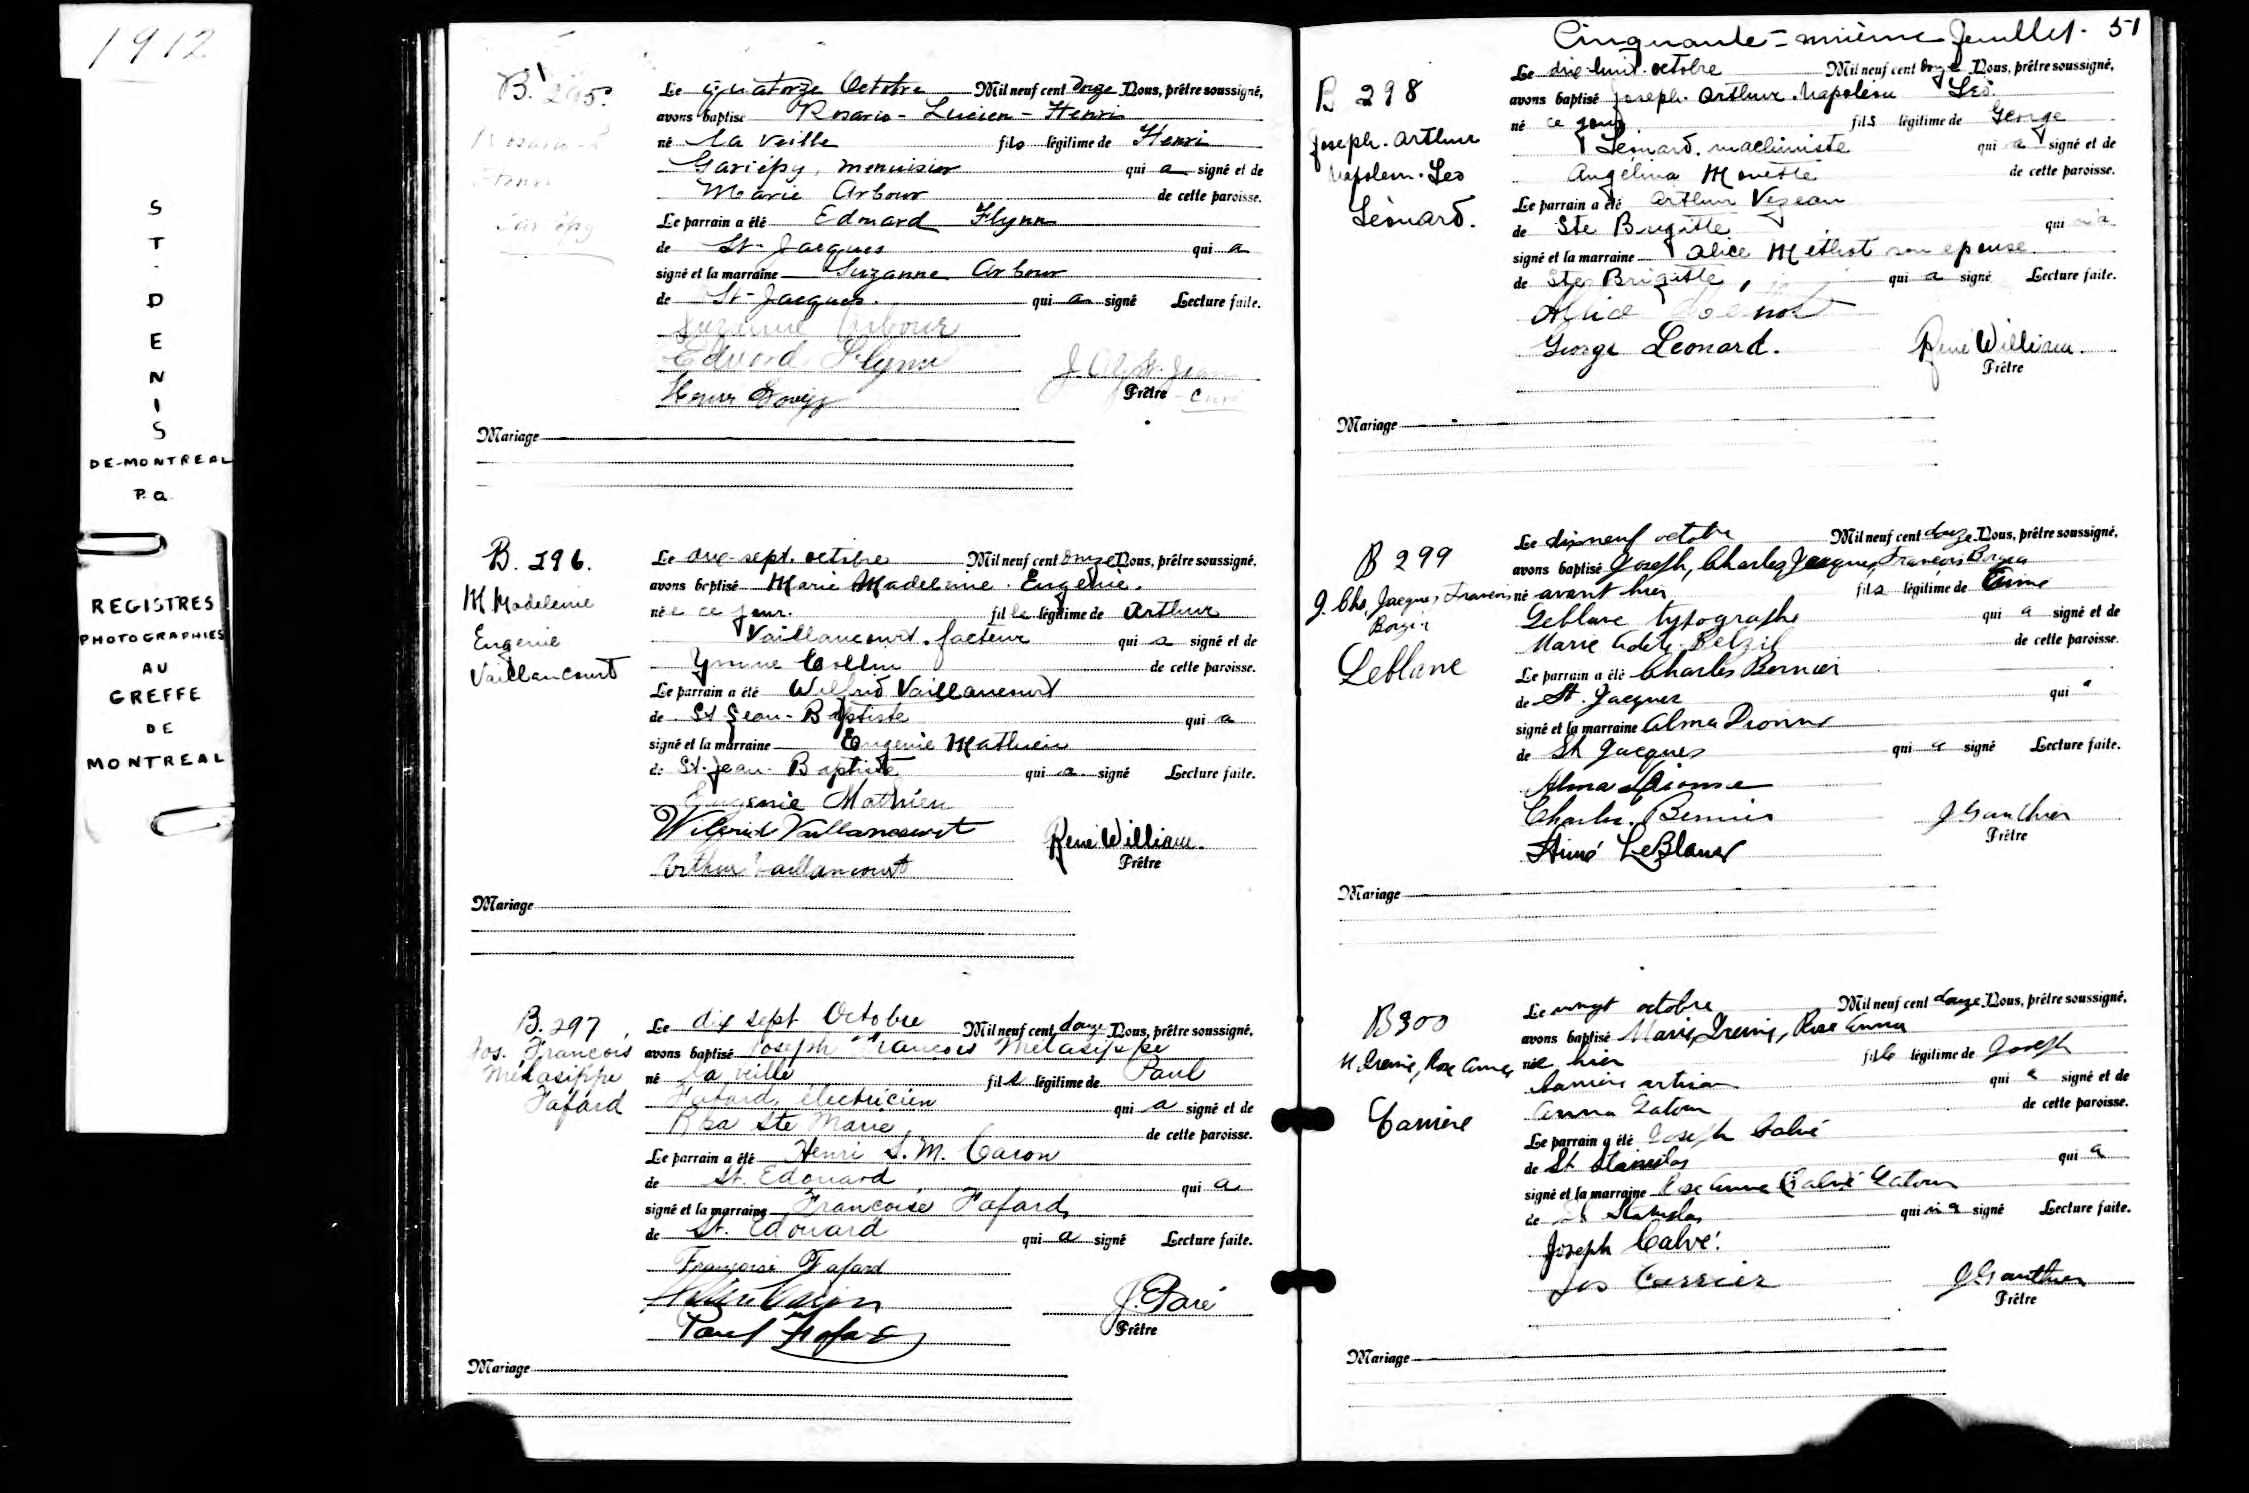 1912
ST-DENIS
DE-MONTREAL
P.Q.
REGISTRES
PHOTOGRAPHIES
AU
GREFFE
DE
MONTREAL
B. 295.
Gariépy
Le quatorze Octobre Mil neuf cent douze Nous, prêtre soussigné,
avons baptisé Rosario - Lucien - Henri
né la veille fils légitime de Henri
Gariépy, menuisier qui a signé et de
Marie Arbour de cette paroisse.
Le parrain a été Edouard Flynn
de St-Jacques qui a
signé et la marraine Suzanne Arbour
de St-Jacques. qui a signé Lecture faite.
Suzanne Arbour
Edward Flynn
J. Prêtre curé
Mariage
B. 296.
M Madeleine
Eugénie
Vaillancourt
Le dix-sept. octobre Mil neuf cent douze Nous, prêtre soussigné,
avons baptisé Marie Madeleine Eugénie.
née ce jour. fille légitime de Arthur
Vaillancourt. facteur qui a signé et de
Collin de cette paroisse.
Le parrain a été Wilfrid Vaillancourt
de St Jean-Baptiste qui a
signé et la marraine Eugénie Mathieu
de St-Jean-Baptiste qui a signé Lecture faite.
Eugenie Mathieu
Wilfrid Vaillancourt
René William.
Arthur Vaillancourt Prêtre
Mariage
B. 297
Jos. François
Mélasippe
Fafard
Le dix sept Octobre Mil neuf cent douze Nous, prêtre soussigné,
avons baptisé Joseph François Mélasippe
né la veille fils légitime de Paul
Fafard, électricien qui a signé et de
Ste Marie de cette paroisse.
Le parrain a été Henri S. M. Caron
de St. Edouard qui a
signé et la marraine Françoise Fafard,
de St. Edouard qui a signé Lecture faite.
Françoise Fafard
Henri Caron
J. Paré
Paul Fafard Prêtre
Mariage
Cinquante-unième feuillet. 51
B 298
Joseph. Arthur
Napoléon. Léo
Léonard.
Le dix-huit octobre Mil neuf cent douze Nous, prêtre soussigné,
avons baptisé Joseph. Arthur. Napoléon Léo.
né ce jour fils légitime de George
Léonard. machiniste qui a signé et de
Angélina Monette de cette paroisse.
Le parrain a été Arthur Vezeau
de Ste Brigitte qui n'a
signé et la marraine Alice Méthot son épouse
de Ste Brigitte, qui a signé Lecture faite.
Alice
George Leonard. René William.
Prêtre
Mariage
B 299
J. Chs, Jacques, François
Leblanc
Le dix neuf octobre Mil neuf cent douze Nous, prêtre soussigné,
avons baptisé Joseph, Charles Jacques, François
né avant hier fils légitime de Aimé
Leblanc typographe qui a signé et de
Marie Adèle Belzil de cette paroisse.
Le parrain a été Charles Bernier
de St. Jacques qui a
signé et la marraine Alma Dionne
de St Jacques qui a signé Lecture faite.
Alma Dionne
Charles. Bernier J Gauthier
Aimé LeBlanc Prêtre
Mariage
B 300
M, Irenie, Rose Anna
Carrière
Le vingt octobre Mil neuf cent douze Nous, prêtre soussigné,
avons baptisé Marie, Irenie, Rose Anna
née hier fille légitime de Joseph
Carrière artisan qui a signé et de
Anna Latour de cette paroisse.
Le parrain a été Joseph Calvé
de St Stanislas qui a
signé et la marraine Rose Anna Calvé Latour
de St Stanislas qui n'a signé Lecture faite.
Joseph Calvé.
Jos Carrier J Gauthier
Prêtre
Mariage